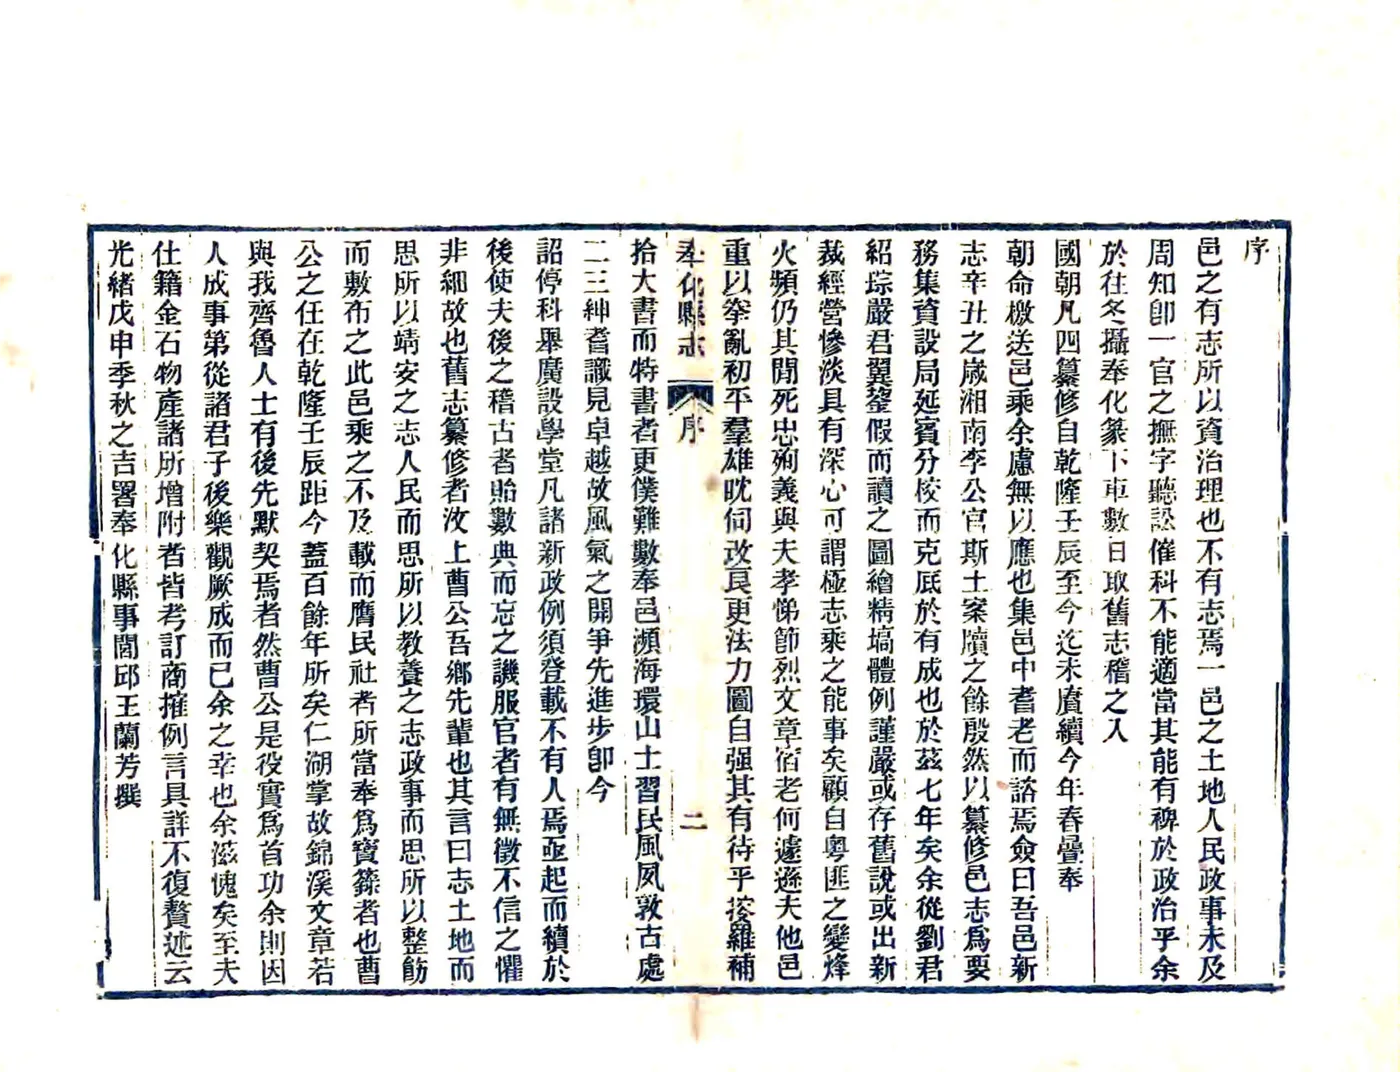 序
邑之有志所以資治理也不有志焉一邑之土地人民政事未及
周知卽一官之撫字聽訟催科不能適當其能有稗於政治乎余
於往冬攝奉化篆下車數日取舊志稽之入
國朝凡四纂修自乾隆壬辰至今迄未賡續今年春疊奉
朝命檄送邑乘余慮無以應也集邑中耆老而諮焉僉曰吾邑新
志辛丑之歲湘南李公官斯土案牘之餘殷然以纂修邑志爲要
務集資設局延賓分校而克底於有成也於茲七年矣余從劉君
紹琮嚴君翼鋆假而讀之圖繪精塙體例謹嚴或存舊說或出新
裁經營慘淡具有深心可謂極志乘之能事矣顧自粵匪之變烽
火頻仍其閒死忠殉義與夫孝悌節烈文章宿老何遽遜夫他邑
重以拳亂初平羣雄眈伺改良更法力圖自强其有待乎搜羅補
奉化縣志
序
二
拾大書而特書者更僕難數奉邑瀕海環山士習民風夙敦古處
二三紳耆識見卓越故風氣之開爭先進步卽今
詔停科舉廣設學堂凡諸新政例須登載不有人焉亟起而續於
後使夫後之稽古者貽數典而忘之譏服官者有無徵不信之懼
非細故也舊志纂修者汶上曹公吾鄉先輩也其言曰志土地而
思所以靖安之志人民而思所以教養之志政事而思所以整飭
而敷布之此邑乘之不及載而膺民社者所當奉爲寶籙者也曹
公之任在乾隆壬辰距今蓋百餘年所矣仁湖掌故錦溪文章若
與我齊魯人士有後先默契焉者然曹公是役實爲首功余則因
人成事第從諸君子後樂觀厥成而已余之幸也余滋愧矣至夫
仕籍金石物產諸所增附者皆考訂商搉例言具詳不復贅述云
光緒戊申季秋之吉署奉化縣事閭邱王蘭芳撰